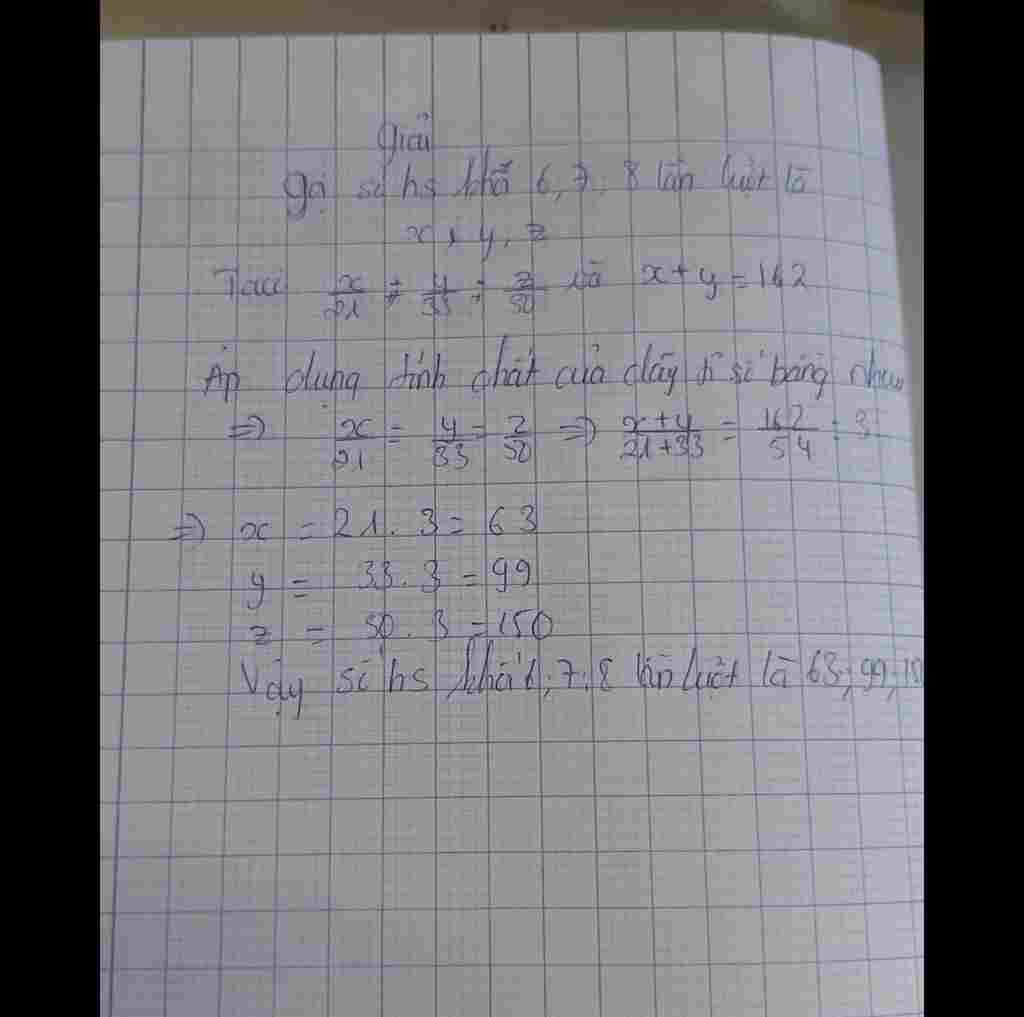 Giải
Gọi số hs khối 6, 7, 8 lần lượt là
x, y, z
Ta có x/21 = y/33 = z/50 và x + y = 162
Áp dụng tính chất của dãy tỉ số bằng nhau
=> x/21 = y/33 = z/50 => x+y/21+33 = 162/54 = 3
=> x = 21. 3 = 63
y = 33. 3 = 99
z = 50. 3 = 150
Vậy số hs khối 6, 7, 8 lần lượt là 63; 99; 150